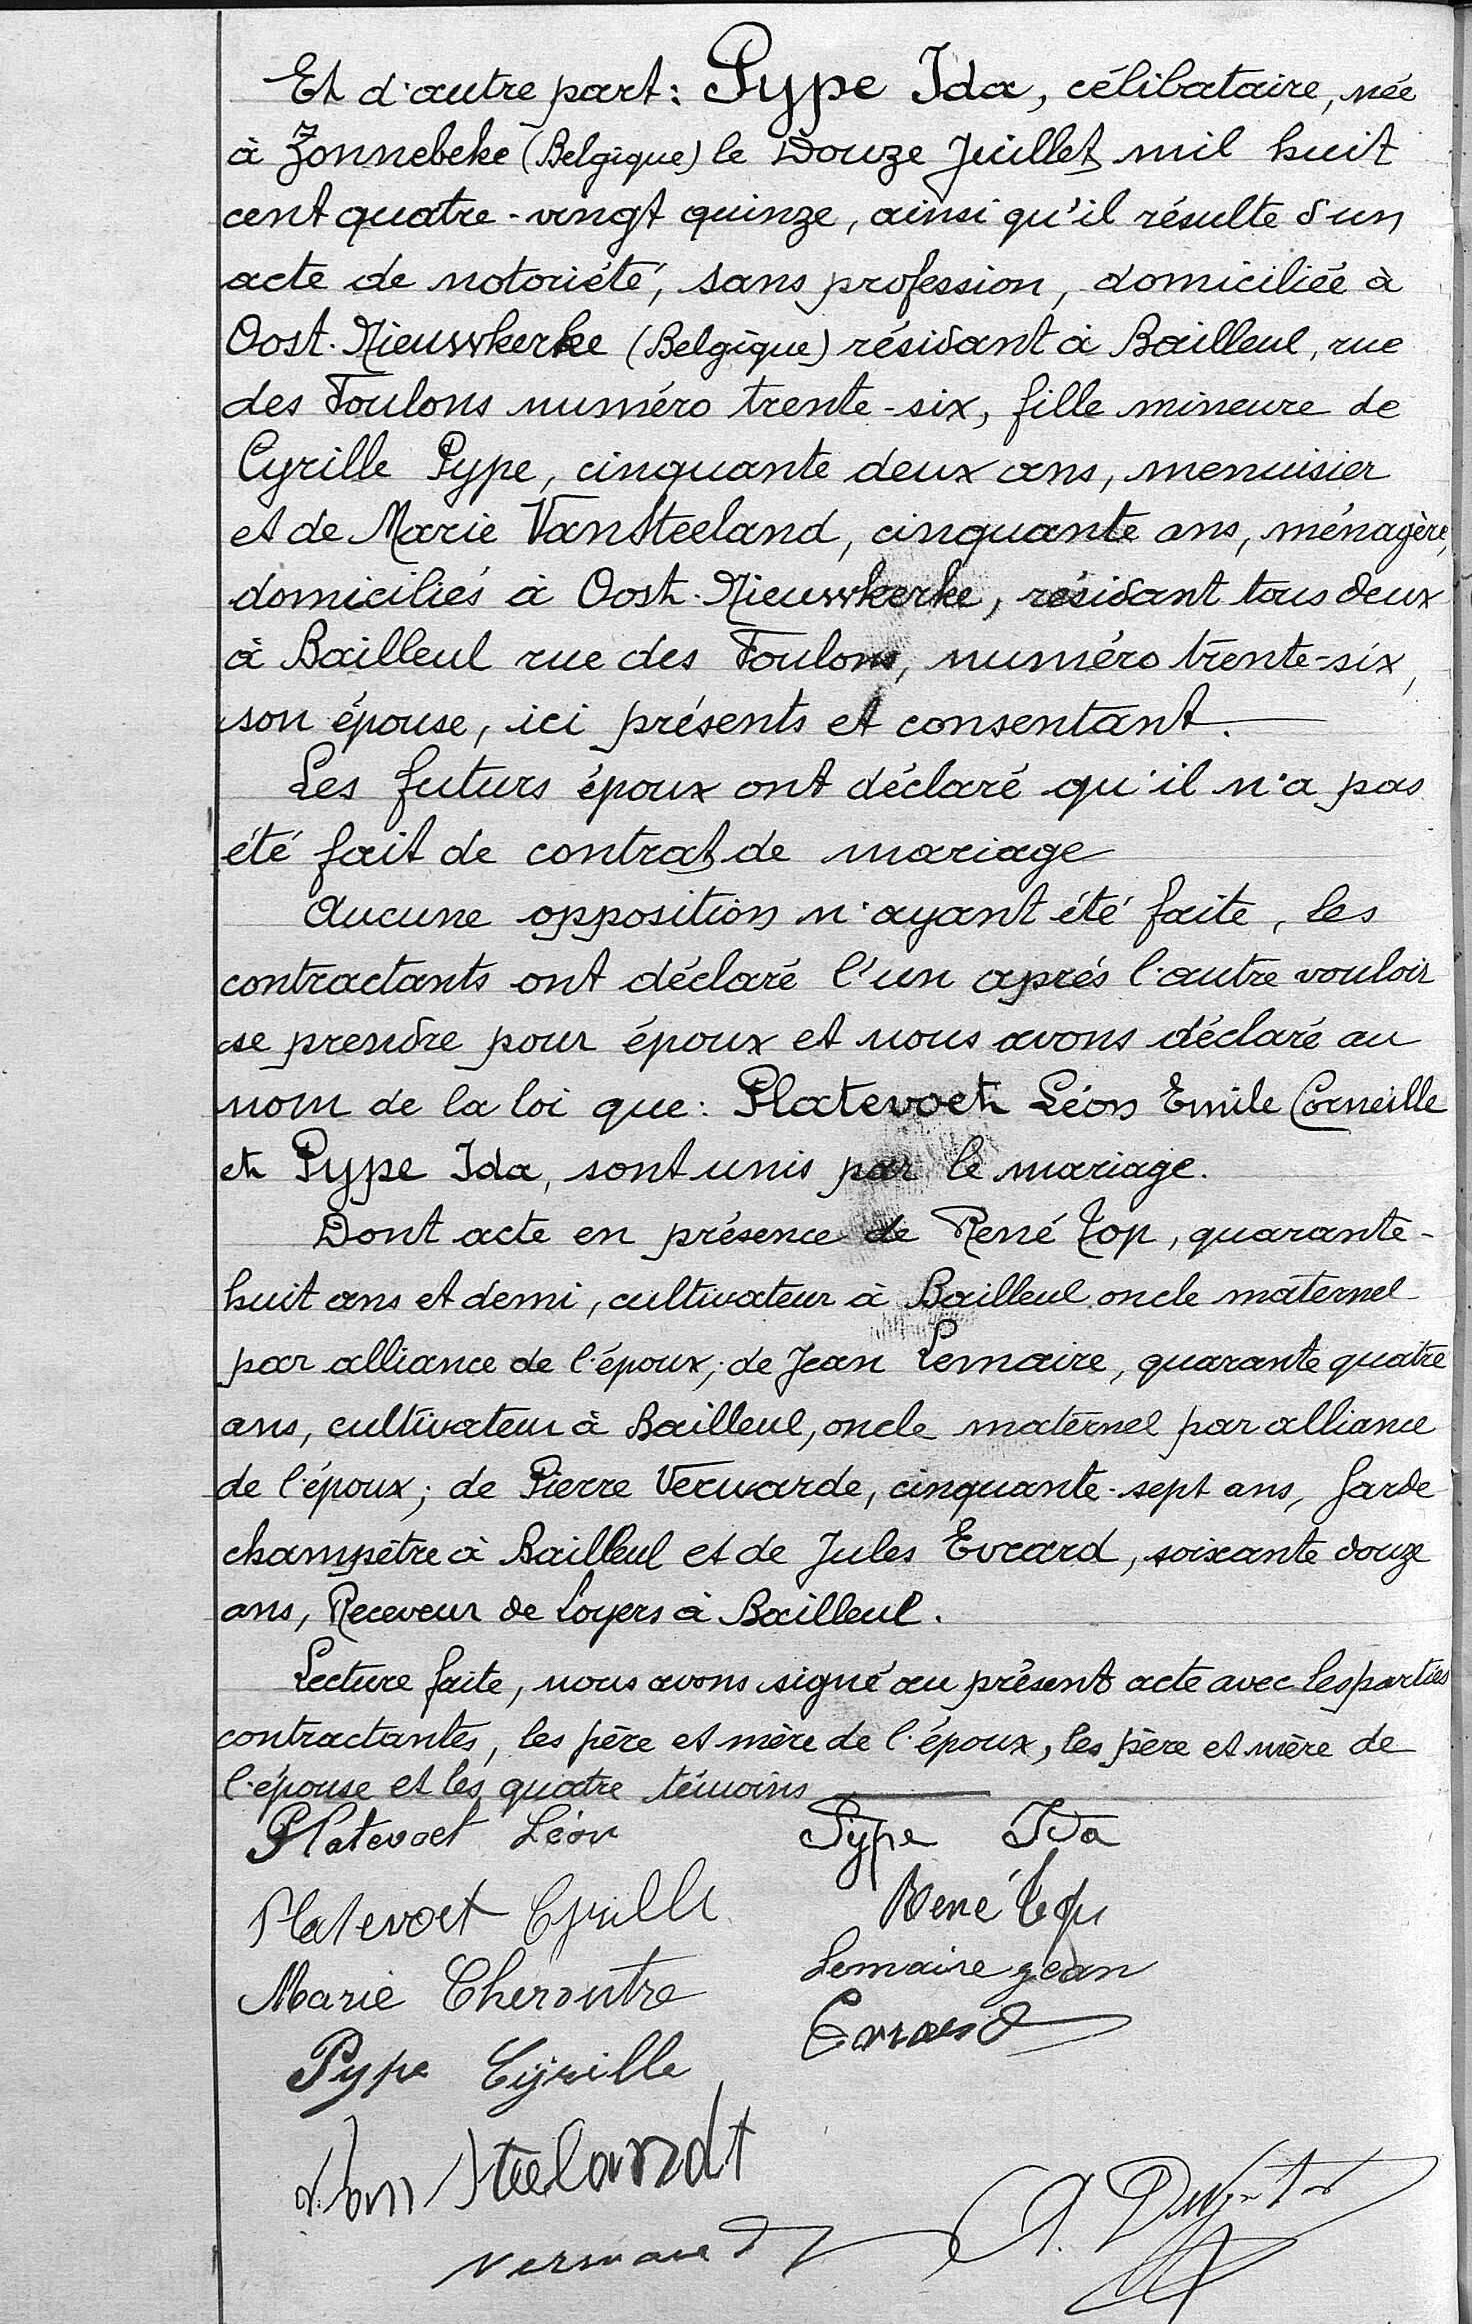 Et d'autre part : Pype Ida, célibataire, née
à Zonnebeke (Belgique) le Douze Juillet mil huit
cent quatre-vingt quinze, ainsi qu'il résulte d'un
acte de notoriété, sans profession, domiciliée à
Oost-Nieuwkerke (Belgique) résidant à Bailleul, rue
des Foulons numéro trente-six, fille mineure de
Cyrille Pype, cinquante deux ans, menuisier
et de Marie Vansteeland, cinquante ans, ménagère,
domiciliés à Oost-Nieuwkerke, résidant tous deux
à Bailleul rue des Foulons, numéro trente-six,
son épouse, ici présents et consentant.
Les futurs époux ont déclaré qu'il n'a pas
été fait de contrat de mariage
Aucune opposition n'ayant été faite, les
contractants ont déclaré l'un après l'autre vouloir
se prendre pour époux et nous avons déclaré au
nom de la loi que : Platevoet Léon Emile Corneille
et Pype Ida, sont unis par le mariage.
Dont acte en présence de René Top, quarante-
huit ans et demi, cultivateur à Bailleul oncle maternel
par alliance de l'époux; de Jean Lemaire, quarante quatre
ans, cultivateur à Bailleul, oncle maternel par alliance
de l'époux; de Pierre Verwarde, cinquante-sept ans, garde
champêtre à Bailleul et de Jules Evrard, soixante douze
ans, Receveur de Loyers à Bailleul.
Lecture faite, nous avons signé au présent acte avec les parties
contractantes, les père et mère de l'époux, les père et mère de
l'épouse et les quatre témoins
Platevoet Léon Pype Ida
Platevoet Cyrille René Top
Marie Cheroutre Lemaire Jean
Pype Cyrille Evrard
Van Steelandt